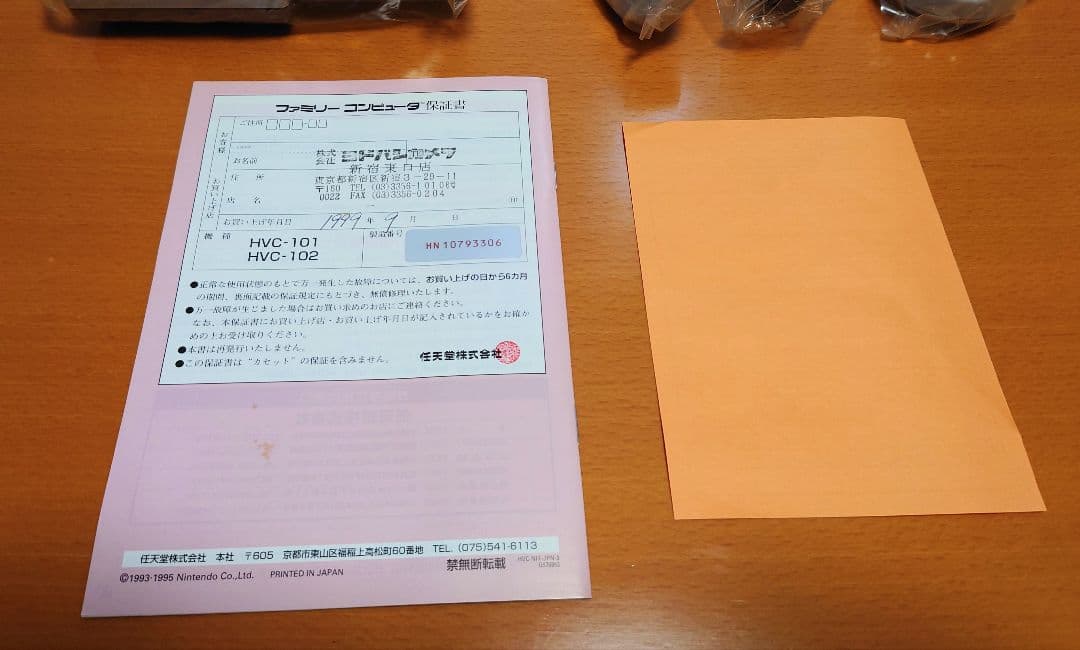 ファミリー コンピュータ 保証書
お客様
ご住所
お名前
株式会社 ヨドバシカメラ
新宿東口店
お買い上げ店
住所
東京都新宿区新宿3-26-11
〒160 TEL (03)3356-1010㈹
0022 FAX (03)3356-0204
店名
印
お買い上げ年月日 1999年 9月 日
機種
HVC-101
HVC-102
製造番号
HN10793306
●正常な使用状態のもとで万一発生した故障については、お買い上げの日から6カ月
の期間、裏面記載の保証規定にもとづき、無償修理いたします。
●万一故障が生じました場合はお買い求めのお店にご連絡ください。
なお、本保証書にお買い上げ店・お買い上げ年月日が記入されているかをお確か
めの上お受け取りください。
●本書は再発行いたしません。
●この保証書は"カセット"の保証を含みません。
任天堂株式会社
任天堂株式会社 本社 〒605 京都市東山区福稲上高松町60番地 TEL. (075)541-6113
©1993-1995 Nintendo Co.,Ltd. PRINTED IN JAPAN
禁無断転載